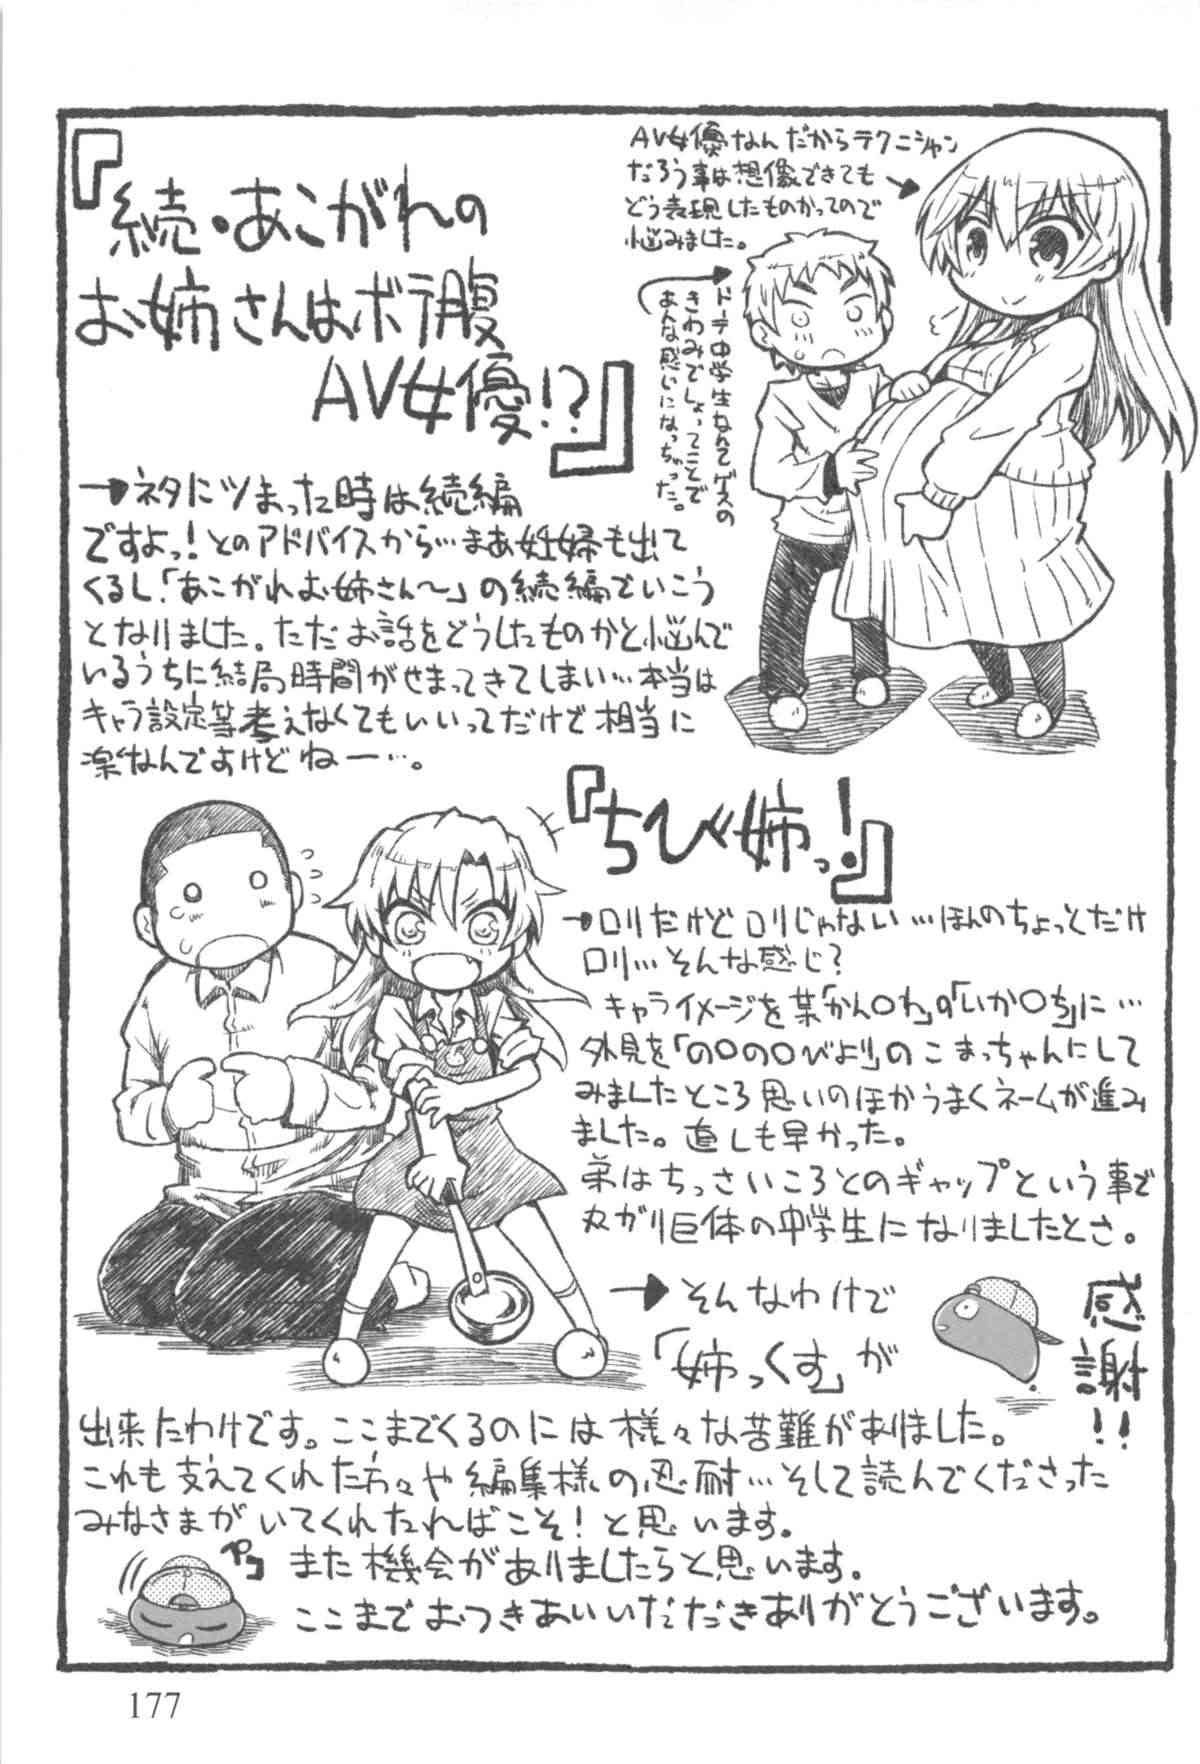 『続・あこがれの
お姉さんはボテ腹
AV女優!?』
AV女優なんだからテクニシャン
だろう事は想像できても
どう表現したものかってので
悩みました。
ドーテー中学生なんてゲスの
きわみでしょってことで
あんな感じになっちゃった。
→ネタにツまった時は続編
ですよっ!とのアドバイスから…まあ妊婦も出て
くるし「あこがれお姉さん〜」の続編でいこう
となりました。ただお話をどうしたものかと悩んで
いるうちに結局時間がせまってきてしまい…本当は
キャラ設定等考えなくてもいいってだけで相当に
楽なんですけどねー…。
『ちび姉っ!』
→ロリだけどロリじゃない…ほんのちょっとだけ
ロリ…そんな感じ?
キャライメージを某「かん○れ」の「いか○ち」に…
外見を「の○の○びより」のこまっちゃんにして
みましたところ思いのほかうまくネームが進み
ました。直しも早かった。
弟はちっさいころとのギャップという事で
丸ガリ巨体の中学生になりましたとさ。
→そんなわけで
「姉っくす」が
感謝!!
出来たわけです。ここまでくるのには様々な苦難がありました。
これも支えてくれた方々や編集様の忍耐…そして読んでくださった
みなさまがいてくれたればこそ!と思います。
また機会がありましたらと思います。
ここまでおつきあいいただきありがとうございます。
177